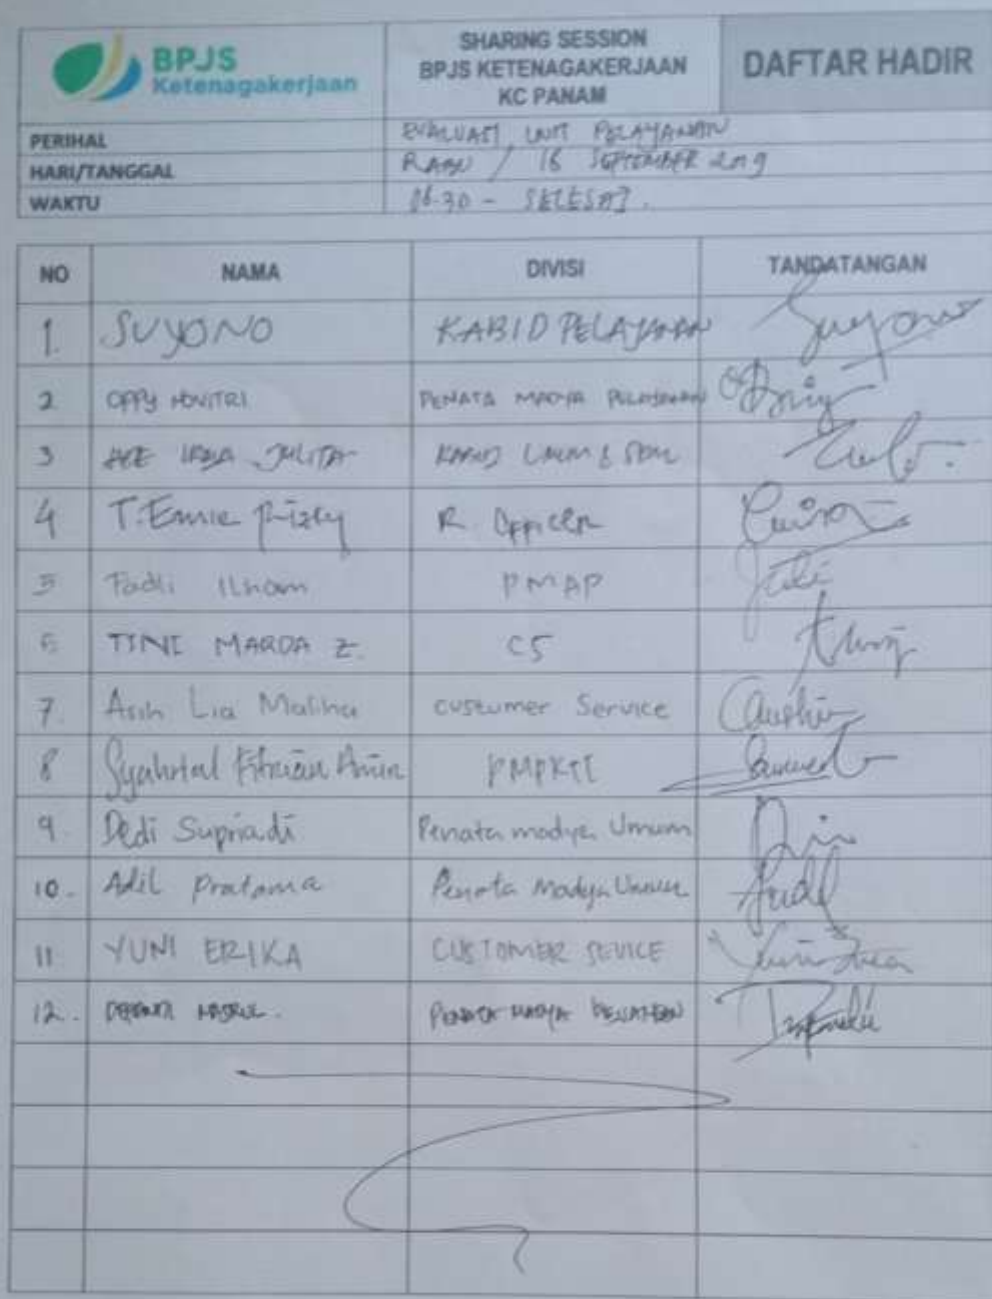 BPJS
Ketenagakerjaan
SHARING SESSION
BPJS KETENAGAKERJAAN
KC PANAM
DAFTAR HADIR
PERIHAL EVALUASI UNIT PELAYANAN
HARI/TANGGAL RABU / 18 SEPTEMBER 2019
WAKTU 06.30 - SELESAI.
NO NAMA DIVISI TANDATANGAN
1. SUYONO KABID PELAYANAN Suyono
2 OPPY NOVITRI PENATA MADYA PELAYANAN
3 JULITA KABID UMUM & SDM
4 T. Emie Rizky R. Officer
5 Fadli Ilham PMAP
6 TINI MARDA Z. CS
7. Asih Lia Maliha custumer Service
8 Fitrian Amin PMPKTI
9. Dedi Supriadi Penata madya Umum
10. Adil Pratama Penata Madya Umum
11 YUNI ERIKA CUSTOMER SEVICE
12. PENATA MADYA